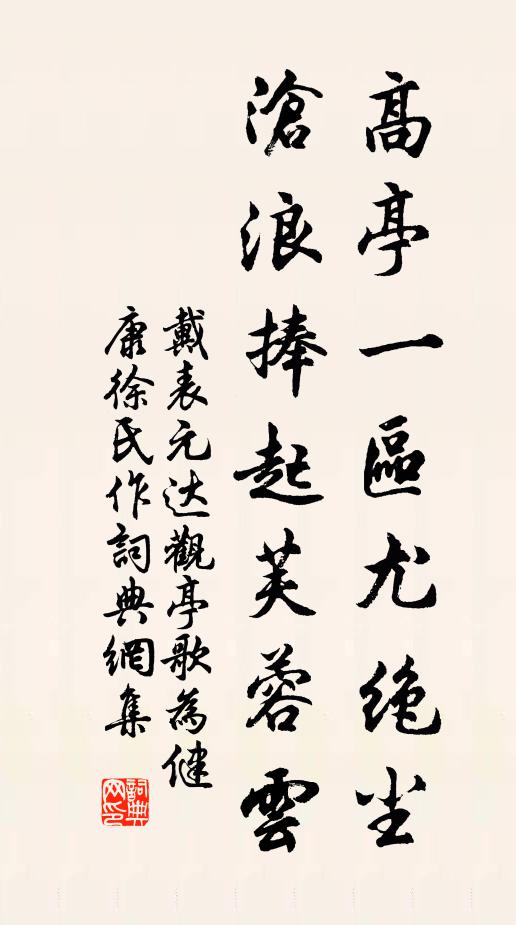 高亭一區尤绝尘
滄浪捧起芙蓉雲
戴表元达觀亭歌為倢
康徐氏作詞典網集
詞典网印